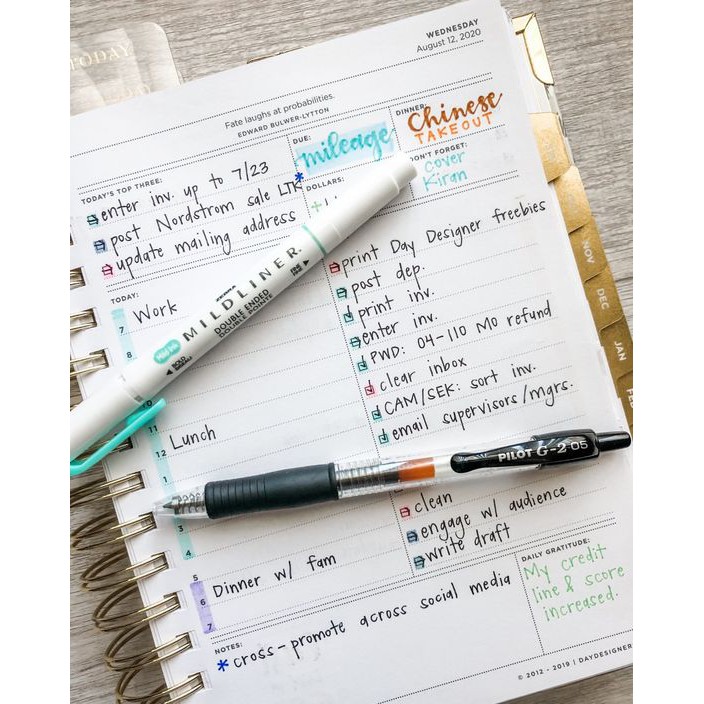 TODAY
WEDNESDAY
August 12, 2020
Fate laughs at probabilities.
EDWARD BULWER-LYTTON
TODAY'S TOP THREE:
enter inv. up to 7/23
* post Nordstrom sale LTK
update mailing address
DUE:
mileage
DINNER:
Chinese
TAKEOUT
DOLLARS:
DON'T FORGET:
cover
Kiran
TODAY:
7 Work
8
10
11 Lunch
12
1
3
4
5 Dinner w/ fam
6
7
print Day Designer freebies
post dep.
print inv.
enter inv.
PWD: 04-110 MO refund
clear inbox
CAM/SEK: sort inv.
email supervisors/mgrs.
clean
engage w/ audience
write draft
NOTES:
* cross-promote across social media
DAILY GRATITUDE:
My credit
line & score
increased.
© 2012 - 2019 | DAYDESIGNER
ZEBRA
MILDLINER.
DOUBLE ENDED
DOUBLE POINTE
PILOT G-2 05
NOV
DEC
JAN